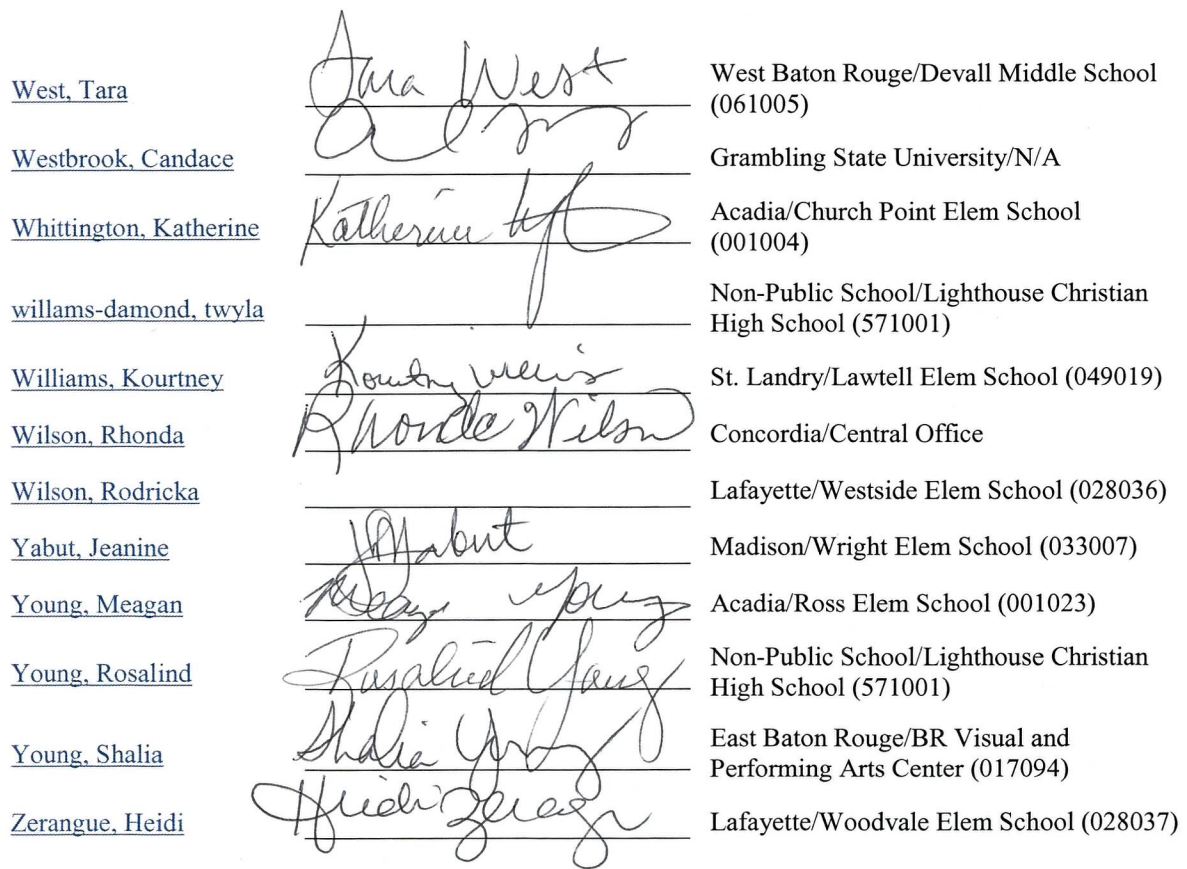 West, Tara Tara West West Baton Rouge/Devall Middle School
(061005)
Westbrook, Candace Grambling State University/N/A
Whittington, Katherine Katherine Acadia/Church Point Elem School
(001004)
willams-damond, twyla Non-Public School/Lighthouse Christian
High School (571001)
Williams, Kourtney Kourtney St. Landry/Lawtell Elem School (049019)
Wilson, Rhonda Rhonda Wilson Concordia/Central Office
Wilson, Rodricka Lafayette/Westside Elem School (028036)
Yabut, Jeanine JYabut Madison/Wright Elem School (033007)
Young, Meagan Meagan Young Acadia/Ross Elem School (001023)
Young, Rosalind Rosalind Young Non-Public School/Lighthouse Christian
High School (571001)
Young, Shalia Shalia Young East Baton Rouge/BR Visual and
Performing Arts Center (017094)
Zerangue, Heidi Heidi Zerangue Lafayette/Woodvale Elem School (028037)